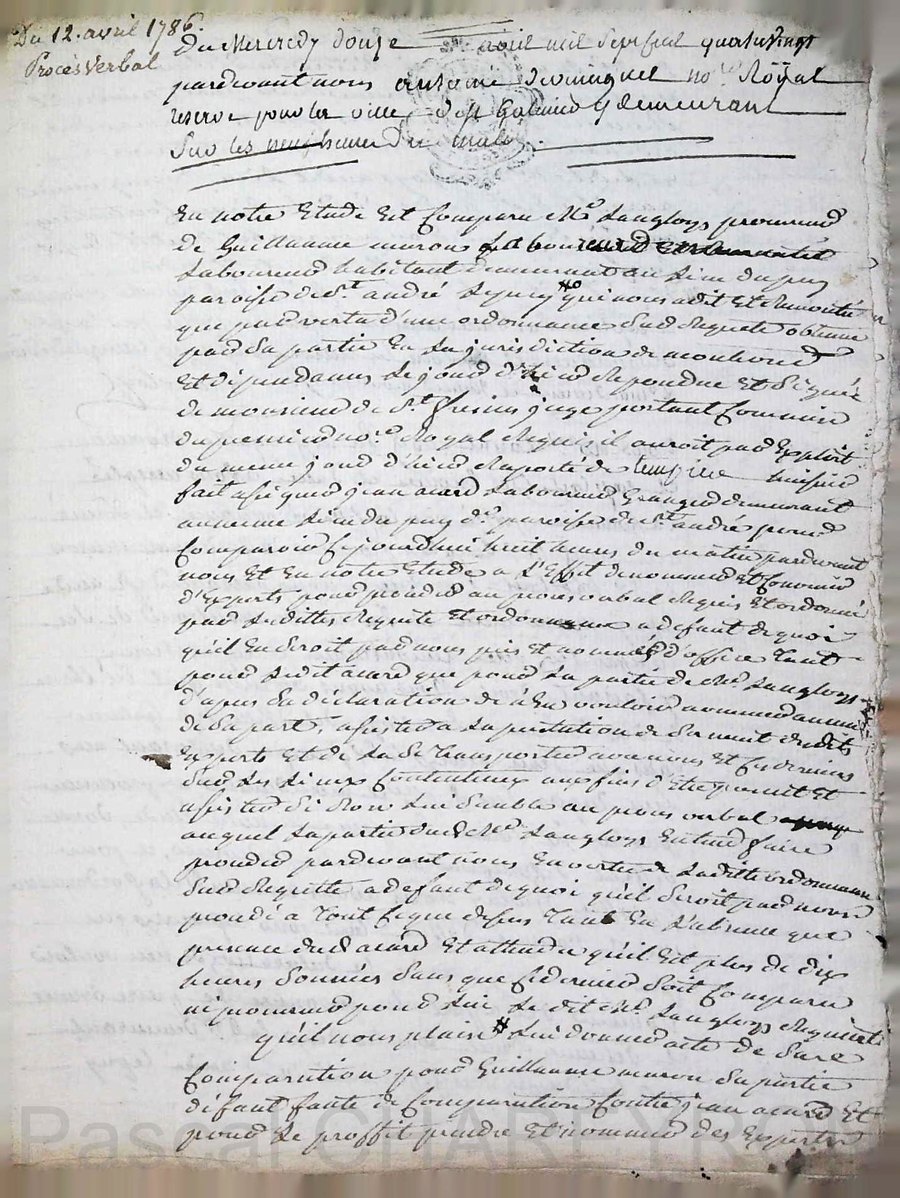 Du 12. avril 1786.
Procès verbal
Du Mercredy douze avril mil sept cent quatrevingt
pardevant nous antoine no.re Royal
reservé pour la ville de st Galmier y demeurant
sur les neuf heures du matin
En notre Etude Est Comparu Me. Langloys procureur
de Guillaume
Laboureur habitant demeurant au Lieu du puy
paroisse de St. andré Lepuy qui nous a dit Et Remontré
que par vertu d'une ordonnance sur Requete obtenue
par sa partie En la jurisdiction de
Et dependances le jour d'hier Repondue Et signée
de monsieur de St. juge portant Commission
du premier no.re Royal Requis il auroit par Exploit
du meme jour d'hier Raporté de huissier
fait assigner jean Laboureur Granger demeurant
au meme Lieu du puy d.e paroisse de St. andré pour
Comparoir Cejourd'hui huit heures du matin pardevant
nous Et En notre Etude a L'Effet de nommer Et Convenir
d'Experts pour proceder au proces verbal Requis Et ordonné
par Ladittes Requete Et ordonnance a defaut de quoi
qu'il En seroit par nous pris Et nommés d'office Tant
pour Ledit que pour La partie de Me. Langloys
d'apres sa declaration de n'En vouloir nommer aucun
de sa part, assister a La prestation de serment desdits
Experts Et de La se Transporter avec nous Et Ces derniers
sur Les Lieux Contentieux aux fins d'Etre present Et
assister si Bon Lui semble au proces verbal
auquel La partie dud. Me. Langloys Entend faire
proceder pardevant nous En vertu de Laditte ordonnance
sur Requette a defaut de quoi qu'il seroit par nous
procedé a Tout Ce que dessus Tant En L'absence que
presence dud. Et attendu qu'il Est plus de dix
heures sonnées sans que Ce dernier soit Comparu
ni procureur pour Lui Le dit Me. Langloys Requiert
qu'il nous plaise Lui donner acte de sa
Comparution pour Guillaume sa partie
défaut faute de Comparution Contre jean Et
pour Le proffit prendre Et nommer des Experts
Pascal CHARTYRON